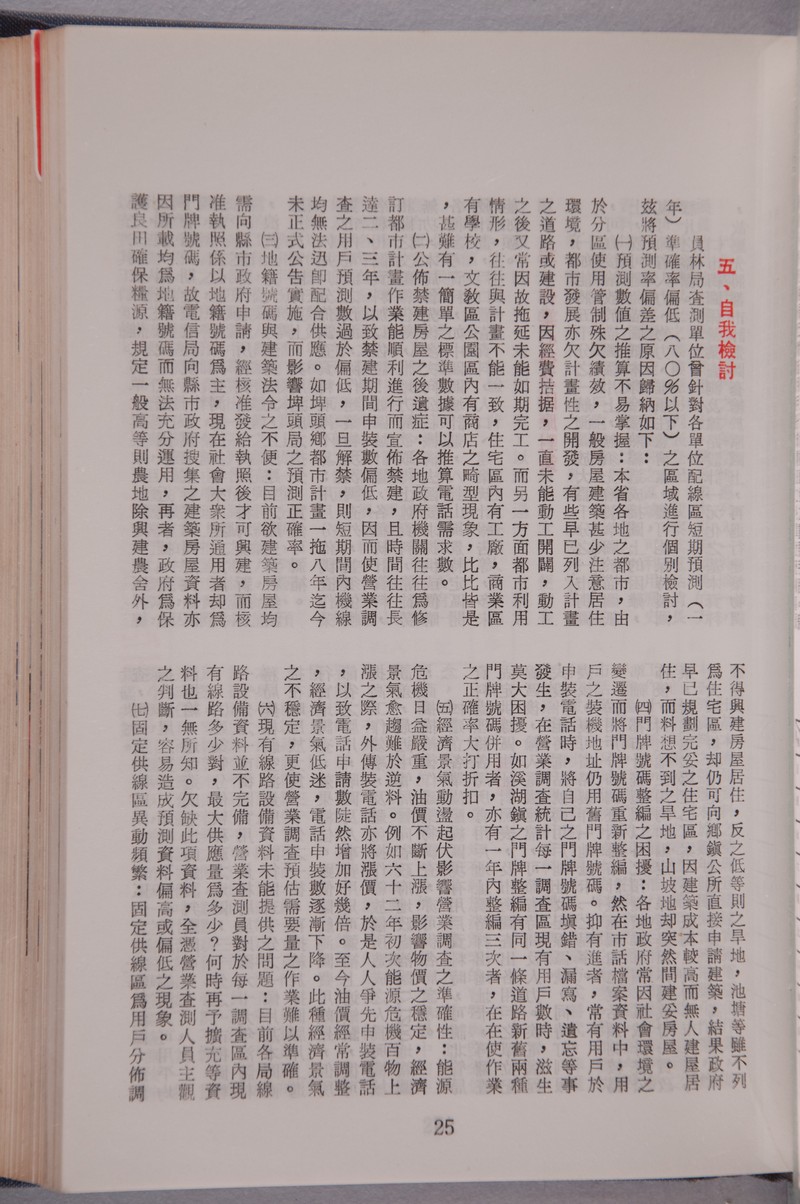 五、自我檢討
員林局查測單位曾針對各單位配線區短期預測（一
年）準確率偏低（八〇％以下）之區域進行個別檢討，
玆將預測率偏差之原因歸納如下：
㈠預測數值之推算不易掌握：本省各地之都市，由
於分區使用管制殊欠績效，一般房屋建築甚少注意居住
環境，都市發展亦欠計畫性之開發，有些早已列入計畫
之道路或建設，因經費拮据，一直未能動工開闢，動工
之後又常因故拖延未能如期完工。而另一方面都市利用
情形，往往與計畫不能一致，住宅區內有工廠，商業區
有學校，文敎區公園區內有商店之畸型現象，比比皆是
，甚難有一簡單之標準數據可以推算電話需求數。
㈡公佈禁建房屋之後遺症：各地政府機關往往爲修
訂都市計畫作業能順利進行而宣佈禁建，且時間往往長
達二、三年，以致禁建期間申裝數偏低，因而使營業調
查之用戶預測數過於偏低，一旦解禁，則短期間內機線
均無法迅卽配合供應。如埤頭鄉都市計畫一拖八年迄今
未正式公告實施，而影響埤頭局之預測正確率。
㈢地籍號碼與建築法令之不便：目前欲建築房屋均
需向縣市政府申請，經核准發給執照後才可興建，而核
准執照係以地籍號碼爲主，現在社會大衆所通用者却爲
門牌號碼，故電信局向縣市政府搜集之建築房屋資料亦
因所載均爲地籍號碼而無法充分運用，再者，政府爲保
護良田確保糧源，規定一般高等則農地除興建農舍外，
不得興建房屋居住，反之低等則之旱地，池塘等雖不列
爲住宅區，却仍可向鄉鎮公所直接申請建築，結果政府
早已規劃完妥之住宅區，因建築成本較高而無人建屋居
住，而料想不到之旱地，山坡地却突然間建妥房屋。
㈣門牌號碼整編之困擾：各地政府常因社會環境之
變遷而將門牌號碼重新整編，然在市話檔案資料中，用
戶之裝機地址仍用舊門牌號碼。抑有進者，常有用戶於
申裝電話時，將自己之門牌號碼塡錯、漏寫、遺忘等事
發生，在營業調查統計每一調查區現有用戶數時，滋生
莫大困擾。如溪湖鎮之門牌整編有同一條道路新舊兩種
門牌號碼併用者，亦有一年內整編三次者，在在使作業
之正確率大打折扣。
㈤經濟景氣動盪起伏影響營業調查之準確性：能源
危機日益嚴重，油價不斷上漲，影響物價之穩定，經濟
景氣愈趨難於逆料。例如六十二年初次能源危機百物上
漲之際，外傳裝電話亦將漲價，於是人人爭先申裝電話
，以致電話申請數陡然增加好幾倍。至今油價經常調整
，經濟景氣低迷，電話申裝數逐漸下降。此種經濟景氣
之不穩定，更使營業調查預估需要量之作業難以準確。
㈥現有線路設備資料未能提供之問題：目前各局線
路設備資料並不完備，營業查測員對於每一調查區內現
有線路多少對，最大供應量爲多少？何時再予擴充等資
料也一無所知。欠缺此項資料，全憑營業查測人員主觀
之判斷，容易造成預測資料偏高或偏低之現象。
㈦固定供線區異動頻繁：固定供線區爲用戶分佈調
25